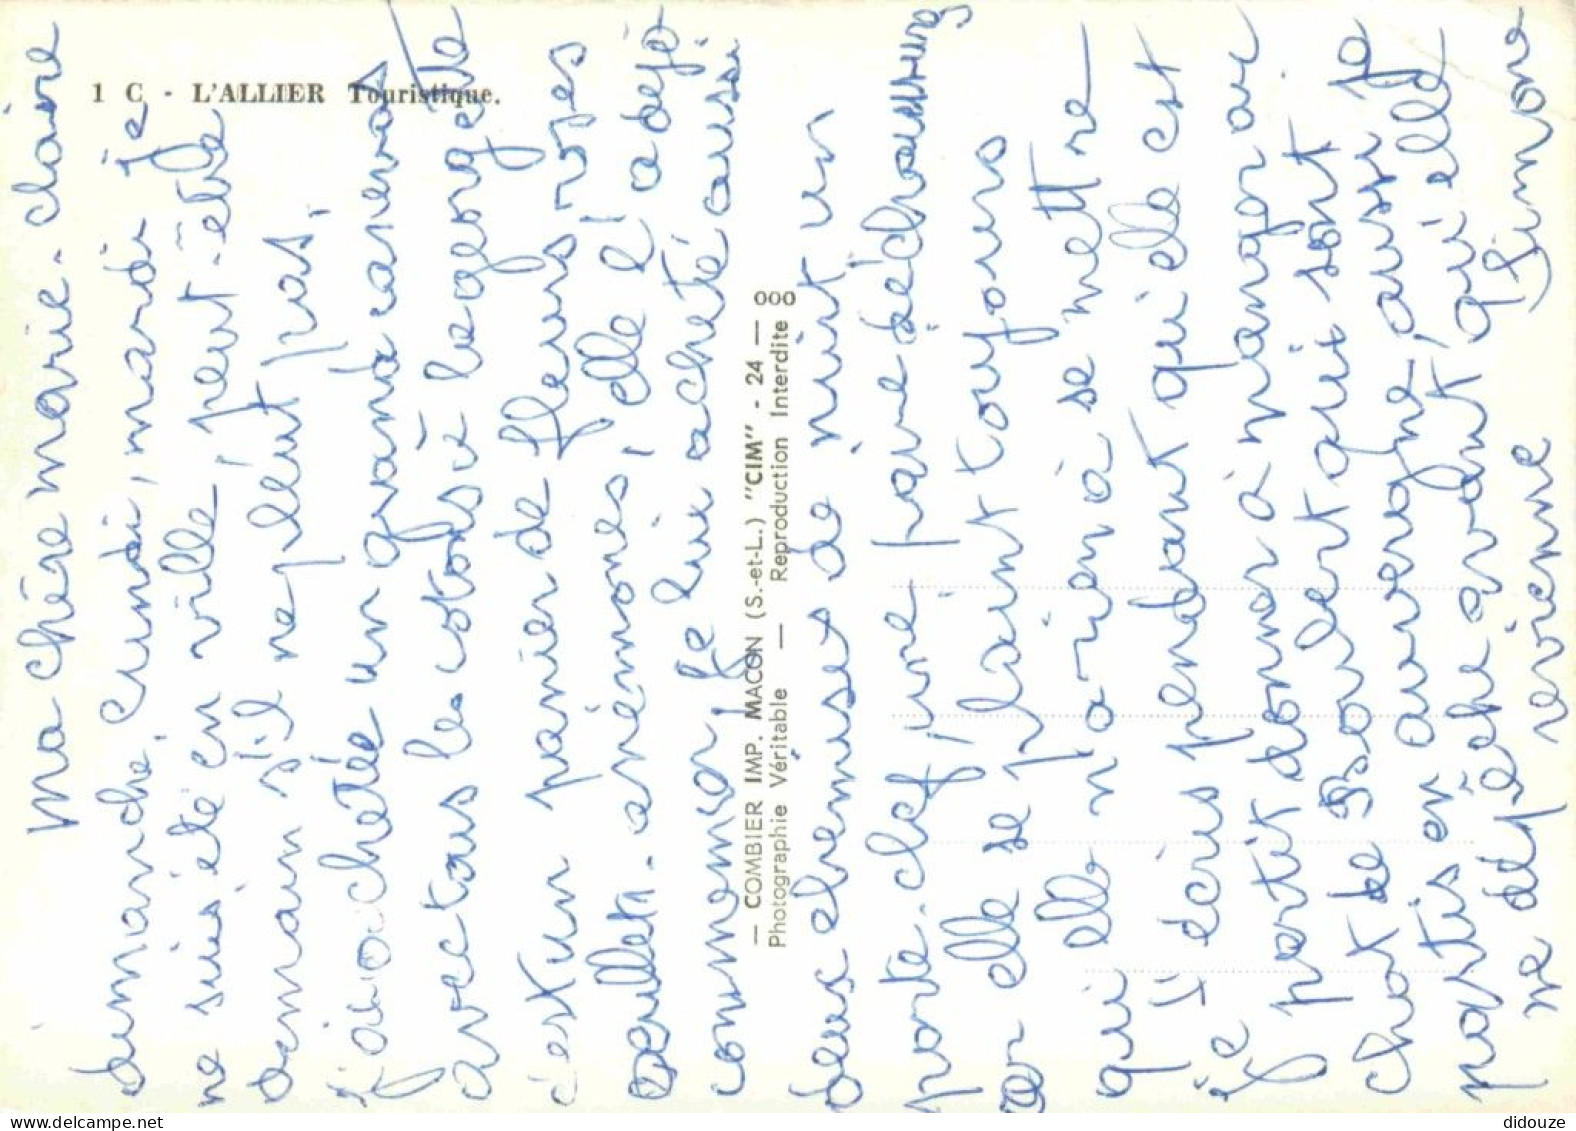 1 C - L'ALLIER Touristique.
ma chère marie-claire
dimanche, lundi, mardi je
ne suis été en ville, peut-être
demain s'il ne pleut pas,
j'ai acheté un grand canevas
avec tous les cotons à
c'est un panier de fleurs roses
oeillets. anémones, elle l'a déjà
commencé, je lui acheté aussi
deux chemises de nuit un
porte-clef, une paire
car elle se plaint toujours
qu'elle n'a rien à se mettre
je t'écris pendant qu'elle est
partit donner à manger au
chat de Boulert qui sont
partis en auvergne, aussi je
me dépêche avant qu'elle
revienne Simone
— COMBIER IMP. MACON (S.-et-L.) "CIM" - 24 —
Photographie Véritable — Reproduction Interdite
didouze